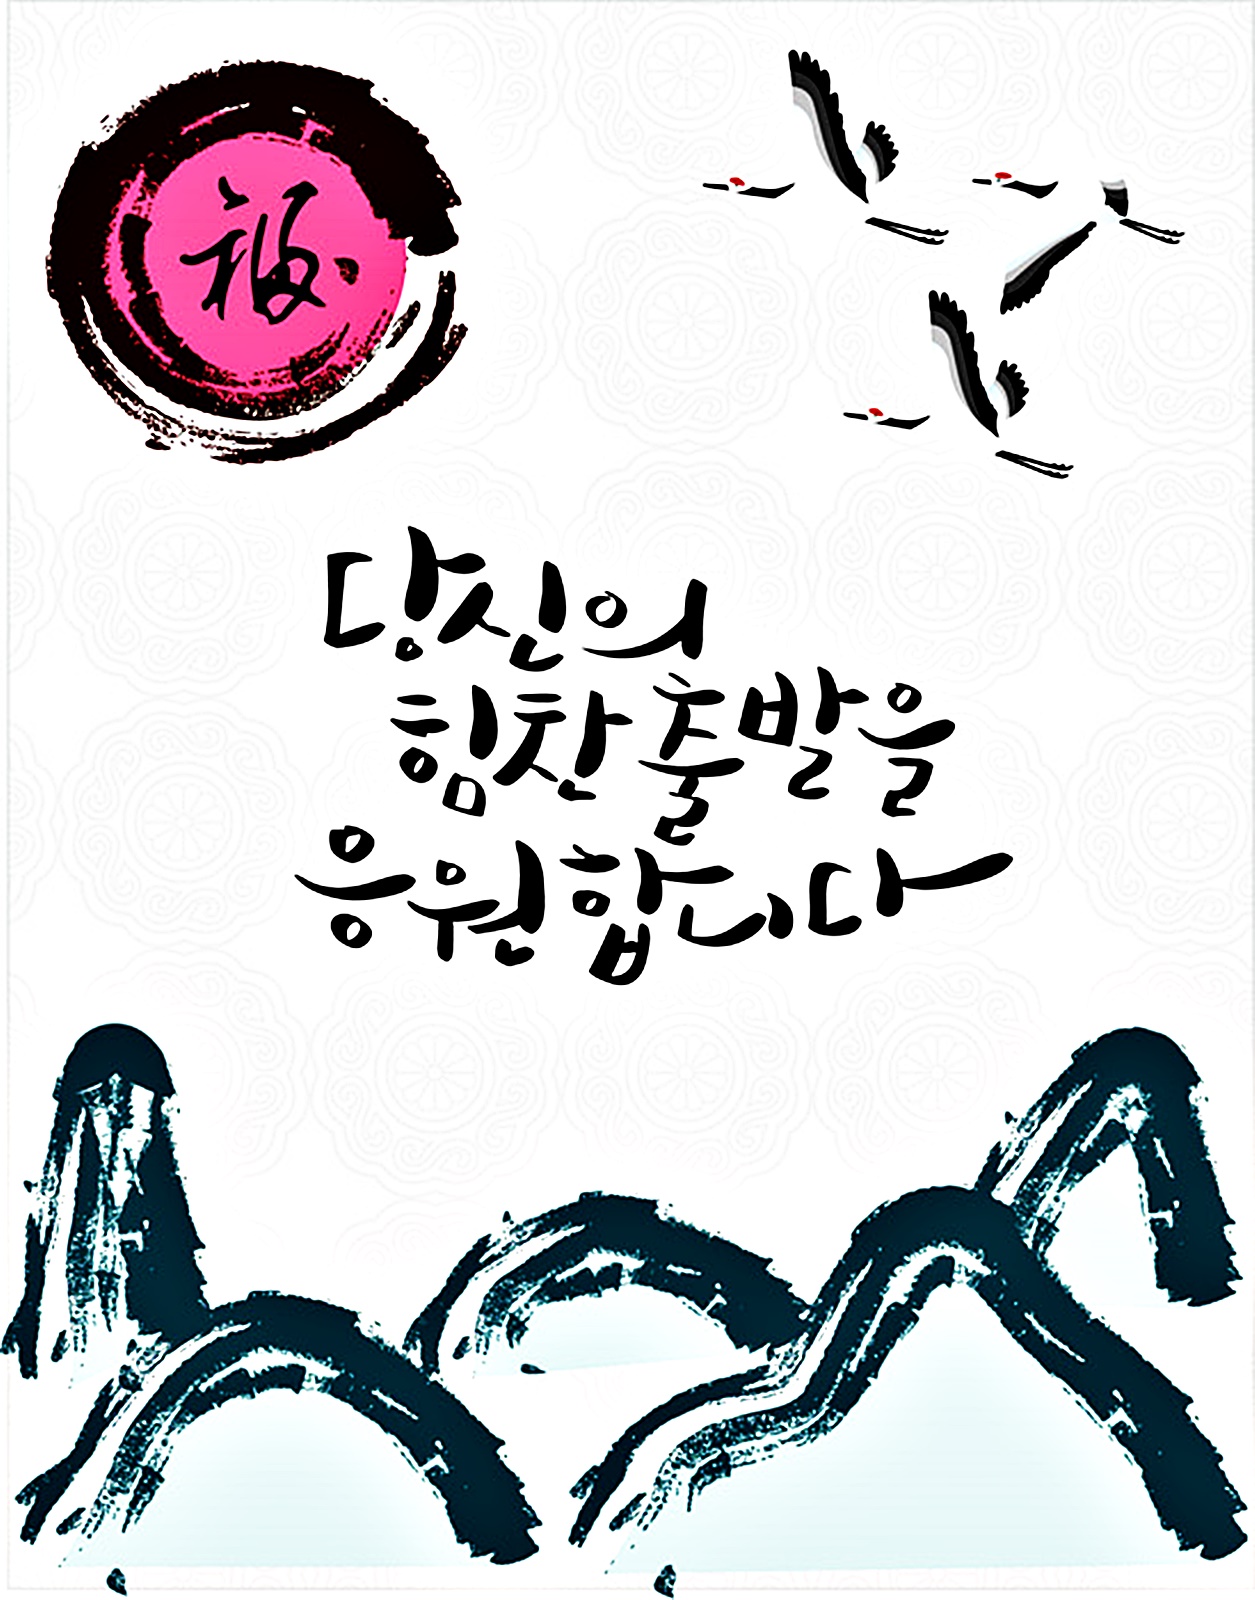 福
당신의
힘찬 출발을
응원합니다